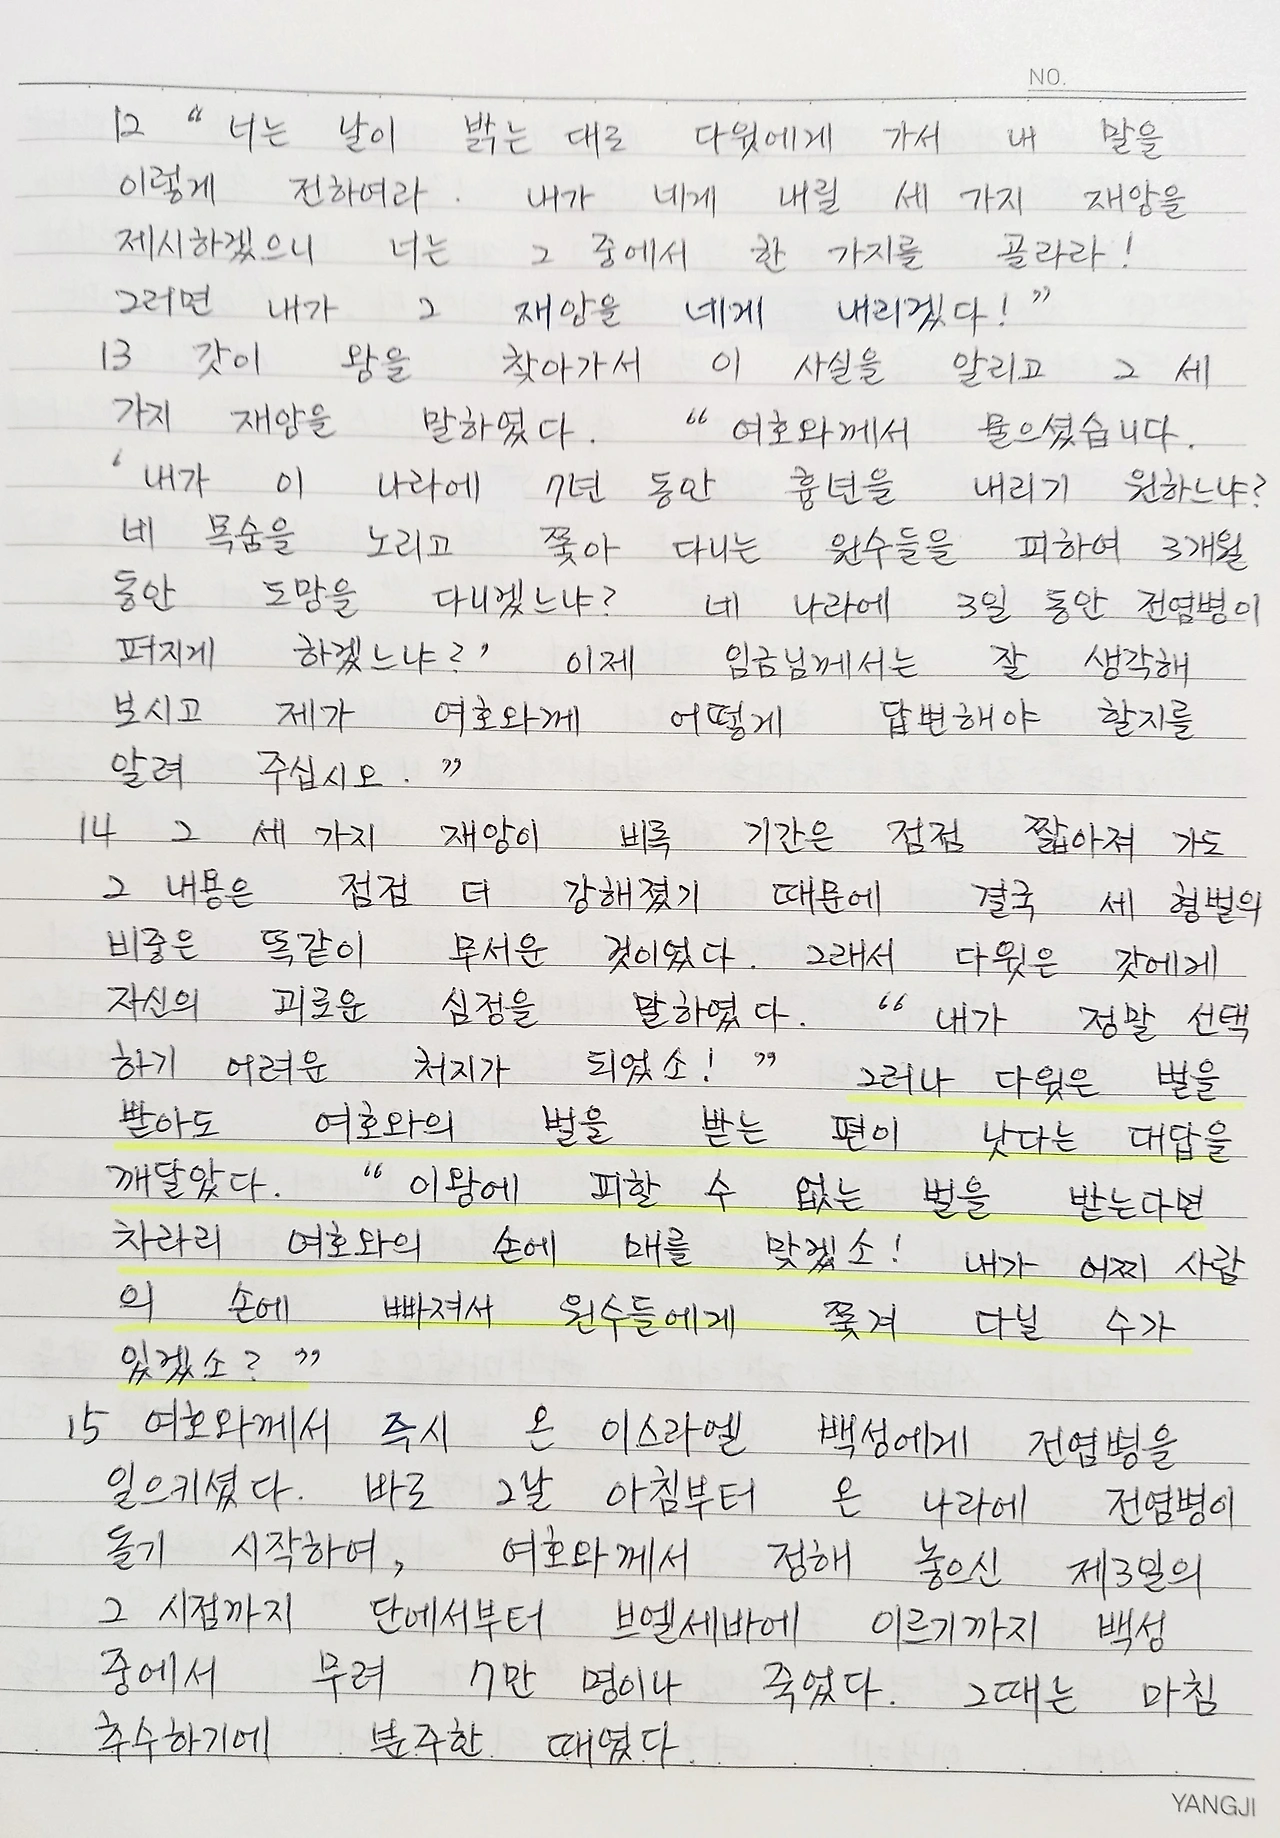 NO.
12 “너는 날이 밝는 대로 다윗에게 가서 내 말을
이렇게 전하여라. 내가 네게 내릴 세 가지 재앙을
제시하겠으니 너는 그 중에서 한 가지를 골라라!
그러면 내가 그 재앙을 네게 내리겠다!”
13 갓이 왕을 찾아가서 이 사실을 알리고 그 세
가지 재앙을 말하였다. “여호와께서 물으셨습니다.
‘내가 이 나라에 7년 동안 흉년을 내리기 원하느냐?
네 목숨을 노리고 쫓아 다니는 원수들을 피하여 3개월
동안 도망을 다니겠느냐? 네 나라에 3일 동안 전염병이
퍼지게 하겠느냐?’ 이제 임금님께서는 잘 생각해
보시고 제가 여호와께 어떻게 답변해야 할지를
알려 주십시오.”
14 그 세 가지 재앙이 비록 기간은 점점 짧아져 가도
그 내용은 점점 더 강해졌기 때문에 결국 세 형벌의
비중은 똑같이 무서운 것이었다. 그래서 다윗은 갓에게
자신의 괴로운 심정을 말하였다. “내가 정말 선택
하기 어려운 처지가 되었소!” 그러나 다윗은 벌을
받아도 여호와의 벌을 받는 편이 낫다는 대답을
깨달았다. “이왕에 피할 수 없는 벌을 받는다면
차라리 여호와의 손에 매를 맞겠소! 내가 어찌 사람
의 손에 빠져서 원수들에게 쫓겨 다닐 수가
있겠소?”
15 여호와께서 즉시 온 이스라엘 백성에게 전염병을
일으키셨다. 바로 그날 아침부터 온 나라에 전염병이
돌기 시작하여, 여호와께서 정해 놓으신 제3일의
그 시점까지 단에서부터 브엘세바에 이르기까지 백성
중에서 무려 7만 명이나 죽었다. 그때는 마침
추수하기에 분주한 때였다.
YANGJI